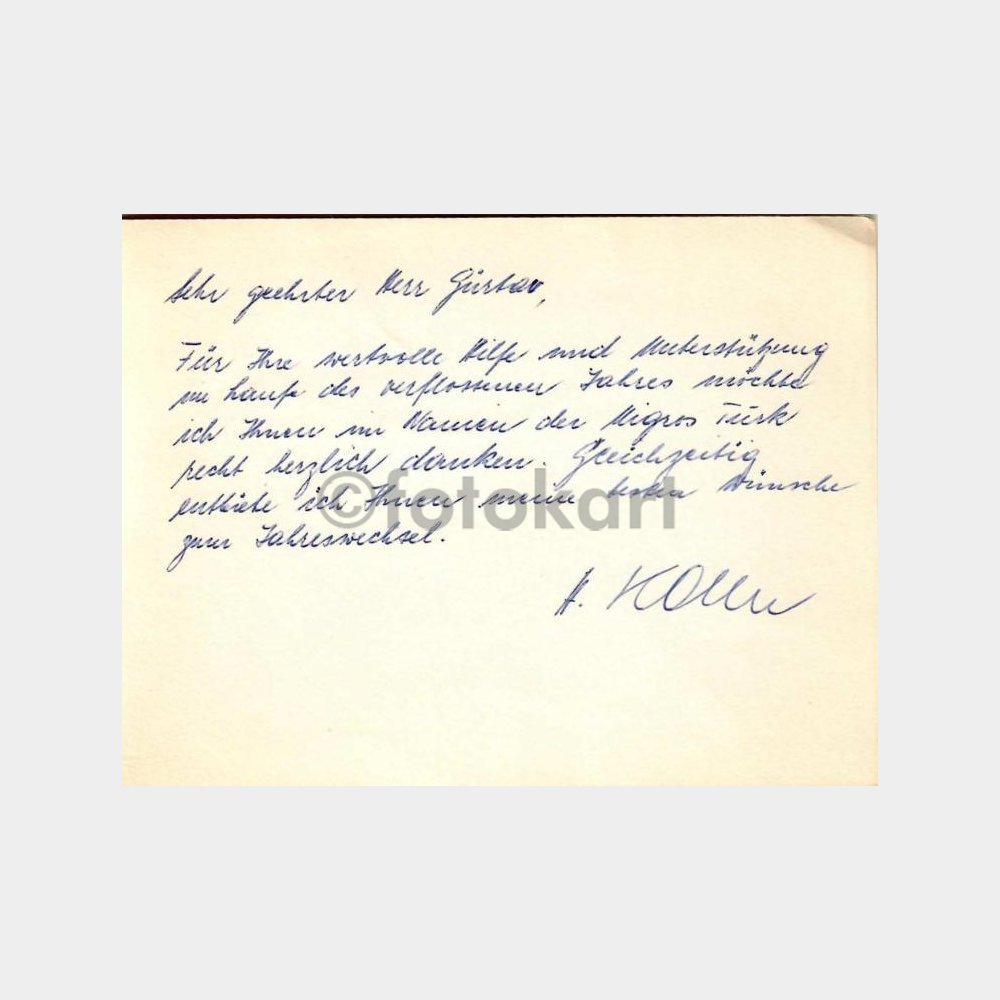 Sehr geehrter Herr Gürsav,
Für Ihre wertvolle Hilfe und Unterstützung
im Laufe des verflossenen Jahres möchte
ich Ihnen im Namen der Migros Türk
recht herzlich danken. Gleichzeitig
entbiete ich Ihnen meine besten Wünsche
zum Jahreswechsel.
H. Koller
©fotokart